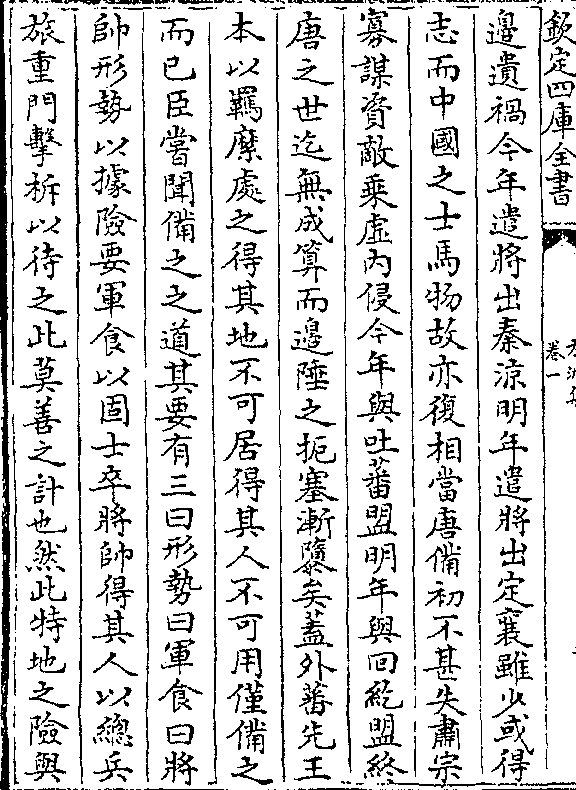 欽定四庫全書
卷一
邊遺禍今年遣將出秦涼明年遣將出定襄雖少或得
志而中國之士馬物故亦復相當唐備初不甚失肅宗
寡謀資敵乗虚内侵今年與吐蕃盟明年與回紇盟終
唐之世迄無成算而邊陲之扼塞漸隳矣蓋外蕃先王
本以羈縻處之得其地不可居得其人不可用僅備之
而已臣嘗聞備之之道其要有三曰形勢曰軍食曰將
帥形勢以據險要軍食以固士卒將帥得其人以總兵
旅重門擊柝以待之此莫善之計也然此特地之險與